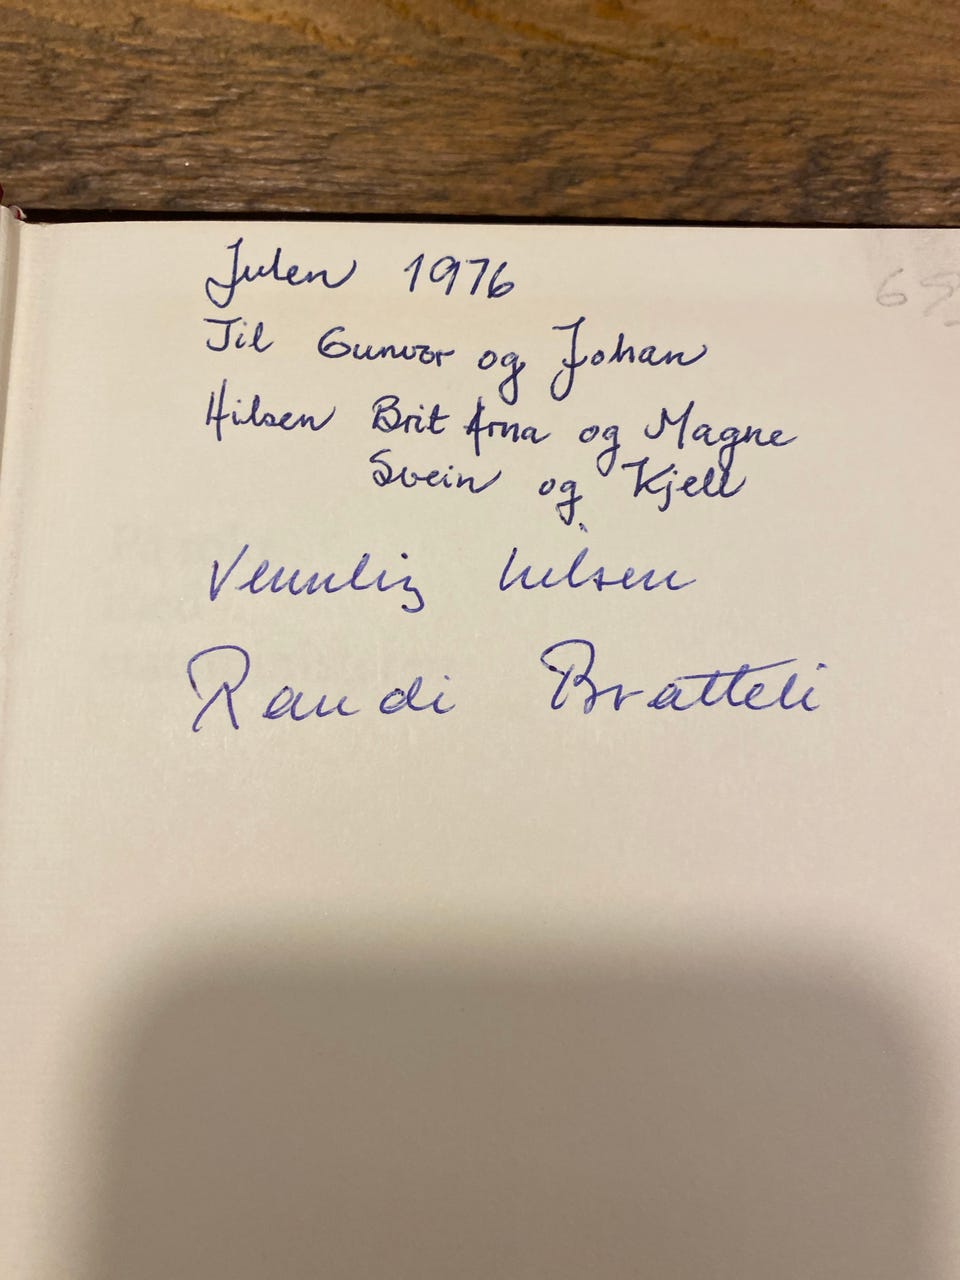 Julen 1976
Til Gunvor og Johan
Hilsen Brit Arna og Magne
Svein og Kjell
Vennlig hilsen
Randi Bratteli